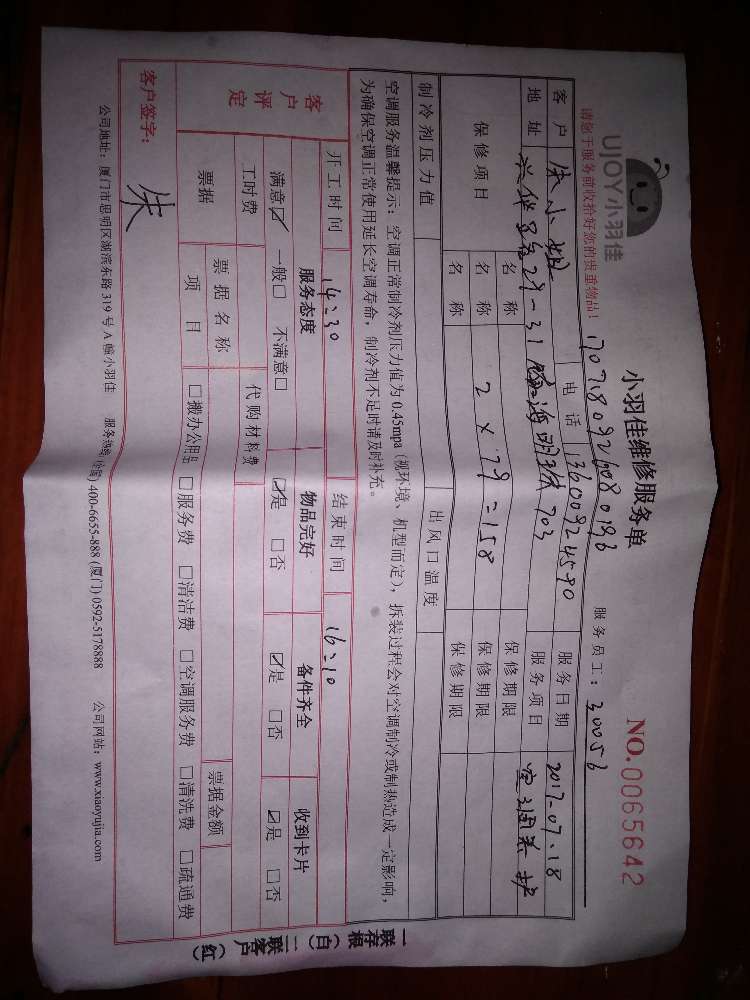 UJOY小羽佳
小羽佳维修服务单
NO.0065642
请您于服务前收拾好您的贵重物品！
1707180926080196
服务员工：30056
客户 朱小姐 电话 13600924590 服务日期 2017-07-18
地址 29-31 703 服务项目 空调养护
保修项目 名称 保修期限
名称 2×79=158 保修期限
名称 保修期限
制冷剂压力值 出风口温度
空调服务温馨提示：空调正常制冷剂压力值为0.45mpa（视环境、机型而定），拆装过程会对空调制冷或制热造成一定影响，
为确保空调正常使用延长空调寿命，制冷剂不足时请及时补充。
开工时间 14:30 结束时间 16:10
客户评定 服务态度 物品完好 备件齐全 收到卡片
满意☑ 一般□ 不满意□ ☑是 □否 ☑是 □否 ☑是 □否
工时费 代购材料费
票据 票据名称 票据金额
项目 □搬办公用品 □服务费 □清洁费 □空调服务费 □清洗费 □疏通费
客户签字： 朱
公司地址：厦门市思明区湖滨东路319号A幢小羽佳 服务热线 400-6655-888 (厦门) 0592-5178888 公司网站：www.xiaoyujia.com
一联存根（白） 二联客户（红）